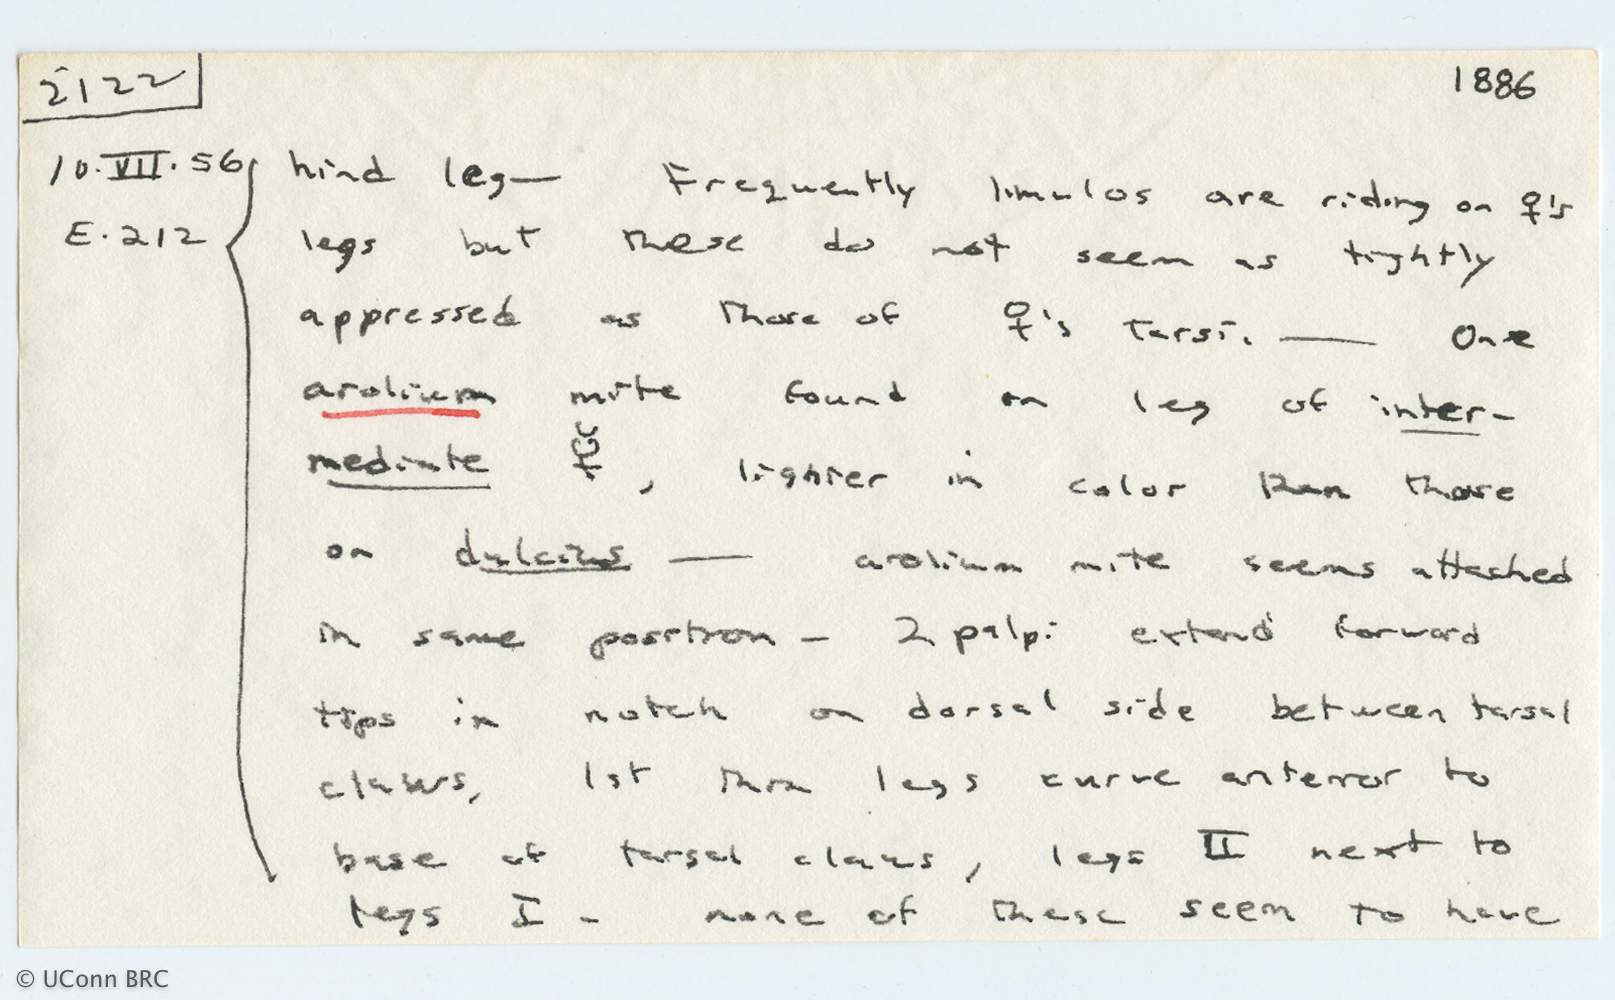 2122
1886
10.VII.56
E.212
hind leg— Frequently limulos are riding on ♀'s
legs but these do not seem as tightly
appressed as those of ♀'s tarsi. — One
arolium mite found on leg of inter-
mediate ☿, lighter in color than those
on dulcius — arolium mite seems attached
in same position - 2 palpi extend forward
tips in notch on dorsal side between tarsal
claws, 1st thin legs curve anterior to
base of tarsal claws, legs II next to
legs I - none of these seem to have
© UConn BRC